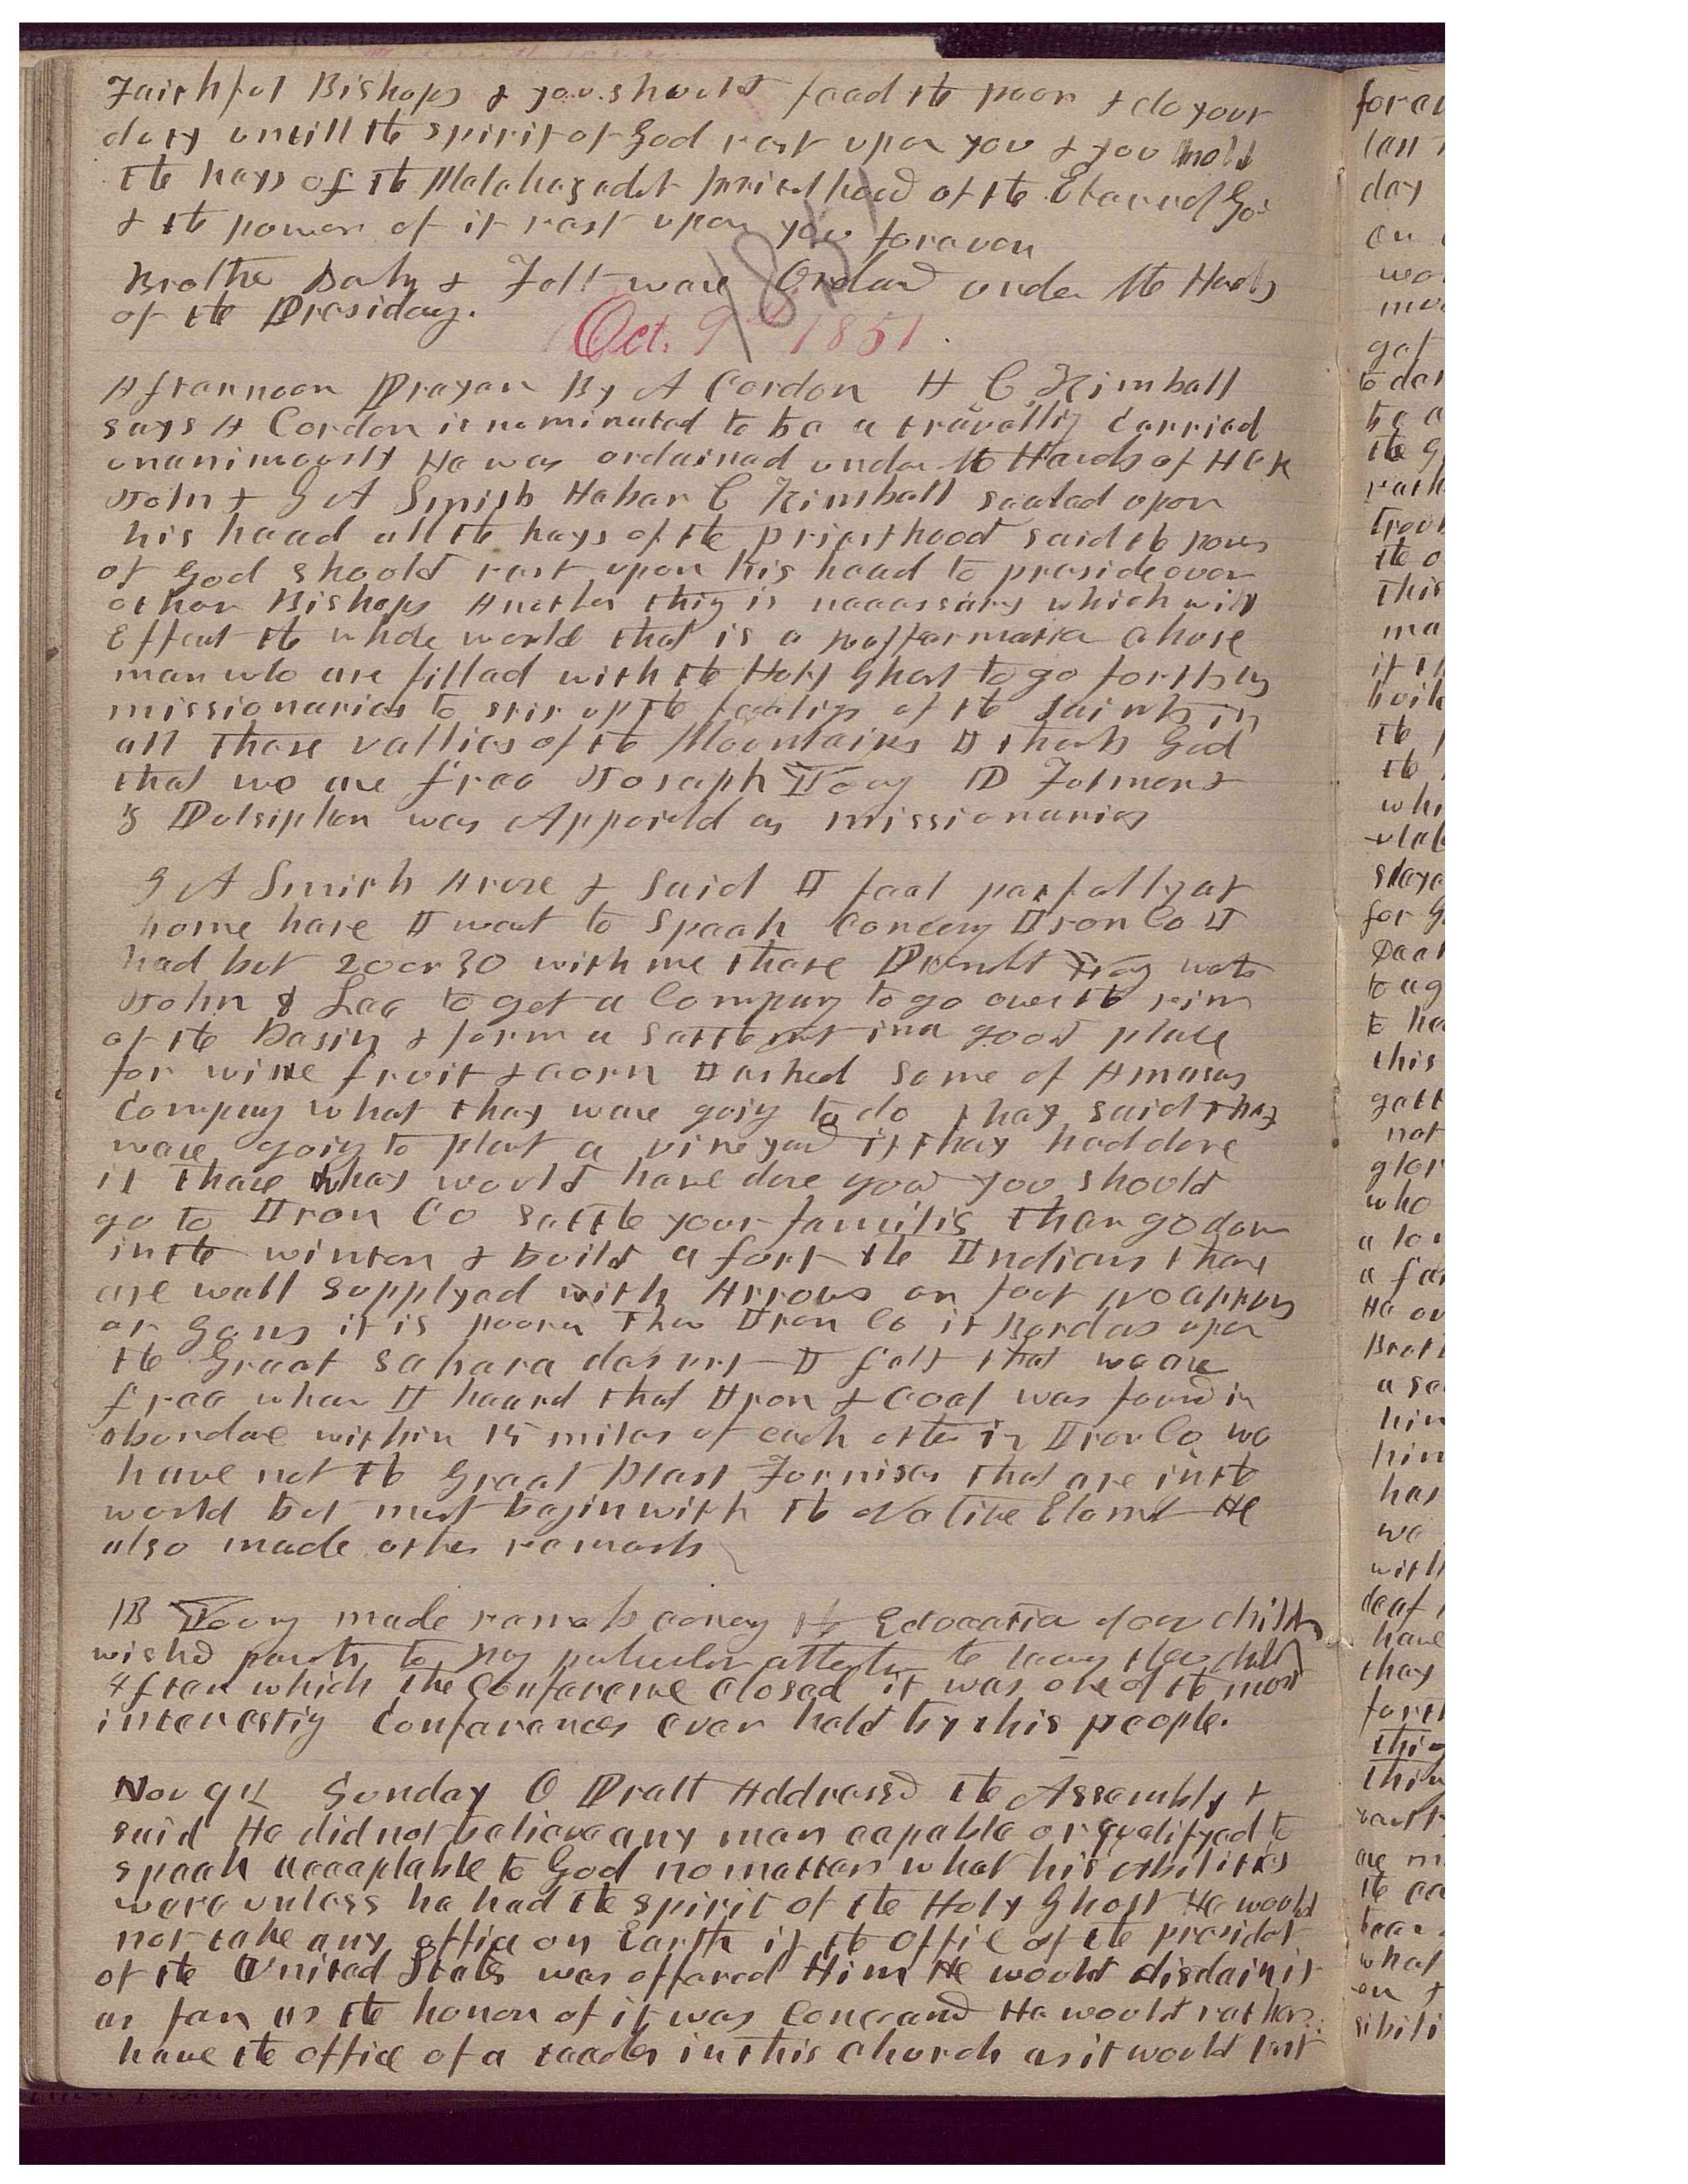 Faithful Bishops & you should feed the poor & do your
duty untill the spirit of God rest upon you & you hold
the keys of the Melchezedek priesthood of the Eternal God
& the power of it rest upon you forever
Brother Daby & Folt ware Ordaind under the Hands
of the Presidency.
1851
Oct. 9th 1851.
Afternoon Prayer By A Cordon H C Kimball
says A Cordon is nominated to be a travelling Carried
unanimously He was ordained under the Hands of HCK
John & G A Smith Heber C Kimball sealed upon
his head all the keys of the priesthood said the power
of God should rest upon his head to preside over
other Bishops Another thing is necessary which will
Effect the whole world that is a refformation chose
men who are filled with the Holy Ghost to go forth as
missionaries to stir up the feelings of the Saints in
all these vallies of the Mountains I thank God
that we are free Joseph Young P Fulmer &
Z Pulsipher was Appointed as missionaries
G A Smith Arose & said I feel perfectly at
home here I want to speak concerning Iron Co I
had but 20 or 30 with me there Presidt Young wants
John D Lee to get a Company to go over the rim
of the Basin & form a settlement in a good place
for wine fruit & corn I asked some of Amasas
Company what they ware going to do they said they
ware going to plant a vineyard if they had done
it there they would have done good you should
go to Iron Co settle your families then go down
in the winter & build a fort the Indians there
are well supplyed with Arrows on foot no apprs
or Guns it is poorer than Iron Co it Borders upon
the Great Sahara desert I felt that we are
free when I heard that Iron & Coal was found in
abundance within 15 miles of each other in Iron Co we
have not the Great Blast Furnises that are in the
world but must begin with the Native Element He
also made other remarks
B Young made remarks concerning the Education of our children
wished parents to pay particular attention to their children
After which the Conference closed it was one of the most
interesting Conferences ever held by this people.
Nov 9th Sunday O Pratt Addressed the Assembly &
said He did not believe any man capable or qualifyed to
speak acceptable to God no matter what his abilities
were unless he had the spirit of the Holy Ghost He would
not take any office on Earth if the office of the president
of the United States was offered Him He would disdain it
as far as the honor of it was Concernd He would rather
have the office of a teacher in this Church as it would last